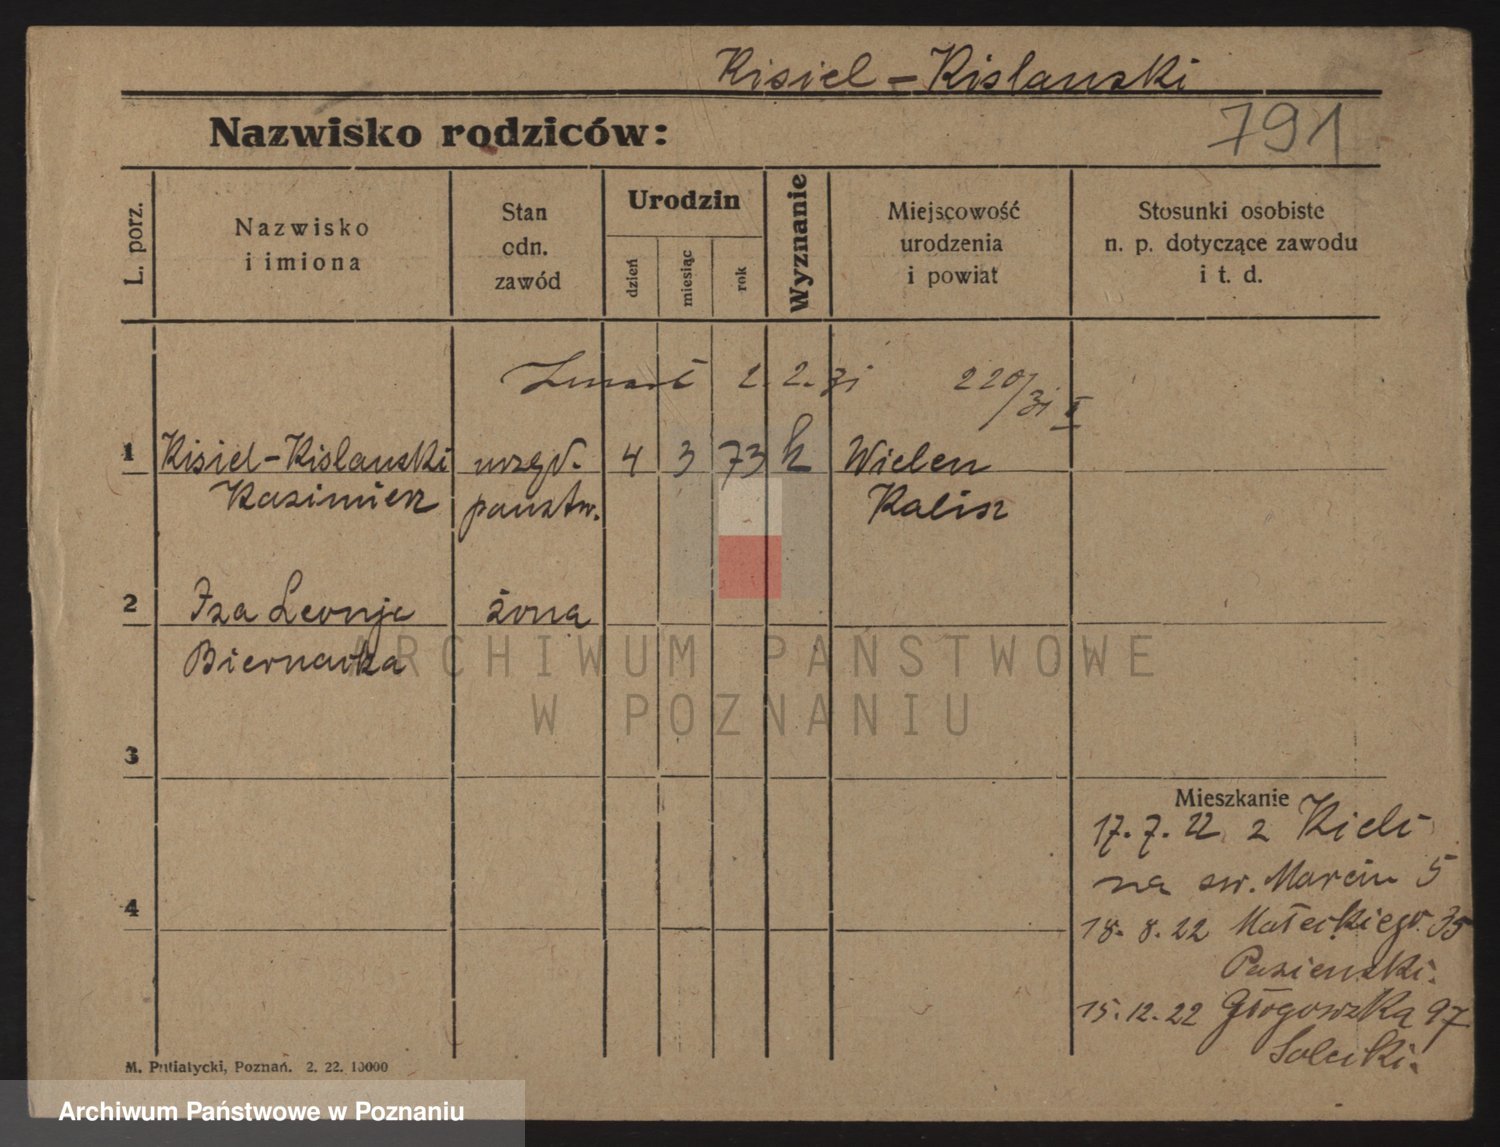 Kisiel-Kislanski
Nazwisko rodziców:
791
L. porz.
Nazwisko
i imiona
Stan
cdn.
zawód
Urodzin
dzień
miesiąc
rok
Wyznanie
Miejscowość
urodzenia
i powiat
Stosunki osobiste
n. p. dotyczące zawodu
i t. d.
Zmarł 2. 2. 31 220/31 II
1 Kisiel-Kislanski urzęd. 4 3 73 k Wielen
Kazimierz państw. Kalisz
2 Iza Leonja żona
Biernacka
ARCHIWUM PAŃSTWOWE
W POZNANIU
3
Mieszkanie
17. 7. 22 z Kielc
na sw. Marcin 5
4
18. 8. 22 Małeckiego. 35
Pasienski.
15. 12. 22 Głogowska 97
Solecki.
M. Putiatycki, Poznań. 2. 22. 10000
Archiwum Państwowe w Poznaniu